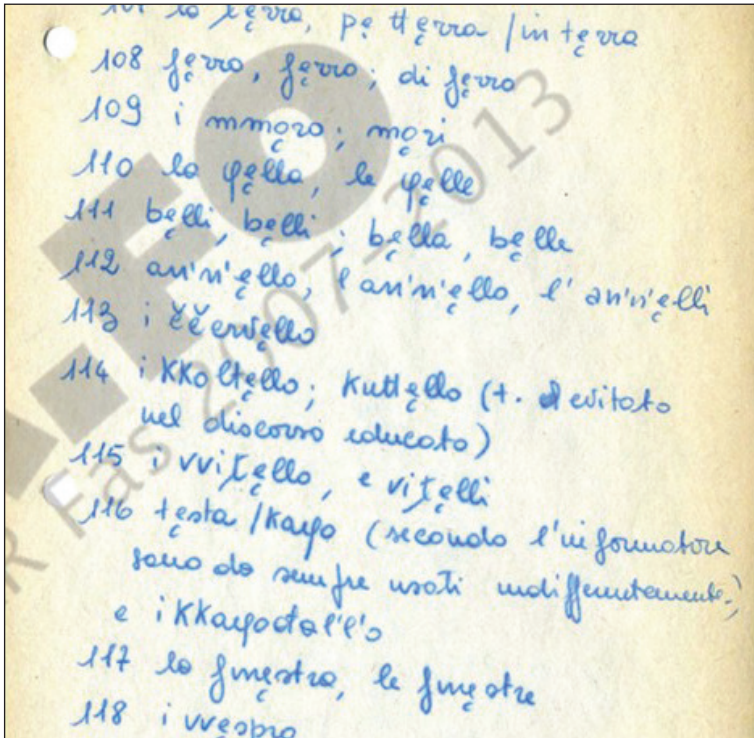 la tęrra, pę ttęrra / in tęrra
108 fęrro, fęrro; di fęrro
109 i mmǫro; mǫri
110 la φęlla, le φęlle
111 bęlli, bęlli; bęlla, bęlle
112 an'n'ęllo, l'an'n'ęllo, l'an'n'ęlli
113 i ččervęllo
114 i KKoltęllo; Kuttęllo (t. evitato
nel discorso educato)
115 i vviŧęllo, e viŧęlli
116 tęsta / Kaφo (secondo l'informatore
sono da sempre usati indifferentemente;)
e i KKaφodal'l'o
117 la finęstra, le finęstre
118 i vvęspro
R FO
R Fas 2007-2013